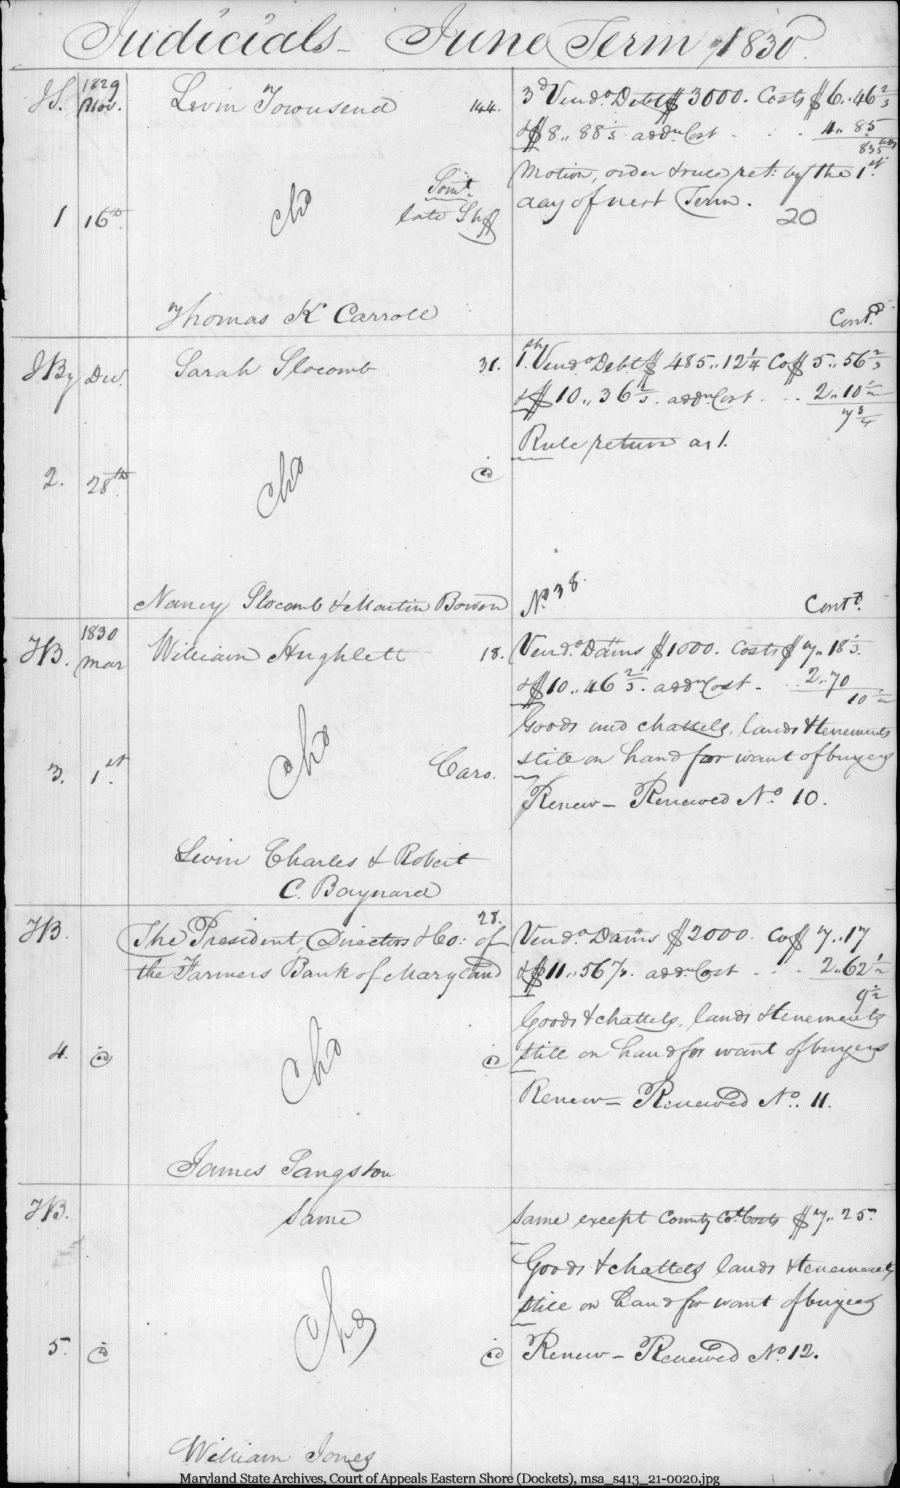 Judicials - June Term 1830.
JS. 1829 Nov. Levin Townsend 144. 3d Vendo. Debt $3000. Costs $6..46 2/3
& $8..88 1/3. addn Cost - . . 4..85
835
Motion, order & rule ret. by the 1st
1 16th chd Somt. late Shff day of next Term.
20
Thomas K Carroll Contd.
JBy Dec. Sarah Slocomb 31. 1. Vendo Debt $485..12 1/4 Co $5..56 2/3
& $10..36 2/3. addn Cost . . . 2..10 1/2
7 3/4
Rule return as 1.
2. 28th chd id
Nancy Slocomb & Martin Bowen No. 38. Contd.
JB. 1830 Mar William Hughlett 18. Vendo. Dams $1000. Costs $7..18 1/3.
& $10..46 2/3. addn Cost - . . 2..70
10 1/2
Goods and chattels, lands & tenements
3. 1st. chd Caro. still on hand for want of buyers
Renew - Renewed No. 10.
Levin Charles & Robert
C. Baynard
JB. The President, Directors & Co: of 28. Vendo. Dams $2000. Co $7..17
the Farmers Bank of Maryland & $11..56 7/8. addn Cost . . . 2..62 1/2
9 1/2
Goods & chattels, lands & tenements
4. id chd id still on hand for want of buyers
Renew - Renewed No. 11.
James Sangston
JB. Same Same except County Ct. Costs $7..25.
Goods & chattels lands & tenements
chd still on hand for want of buyers
5. id id Renew - Renewed No. 12.
William Jones
Maryland State Archives, Court of Appeals Eastern Shore (Dockets), msa_s413_21-0020.jpg